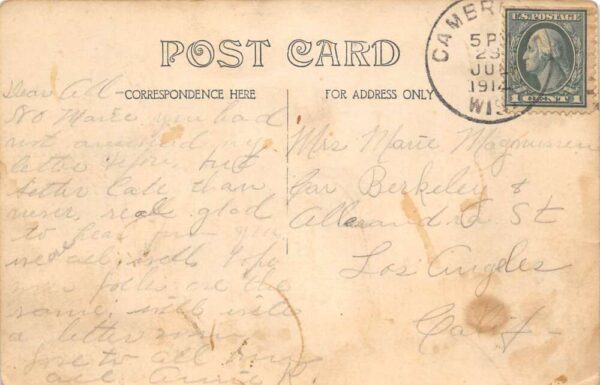 POST CARD
CORRESPONDENCE HERE
FOR ADDRESS ONLY
CAMBRI
5 P
23
JUN
1914
WIS
U.S. POSTAGE
1 CENT 1
Dear All –
No Marie you had
not answered my
letter before, but
better late than
never, real glad
to hear from you
we are all well & hope
your folks are the
same, will write
a letter soon
love to all from
all. Annie K.
Mrs Marie Magnussen
Cor Berkeley &
Alexandra St
Los Angeles
Calif –